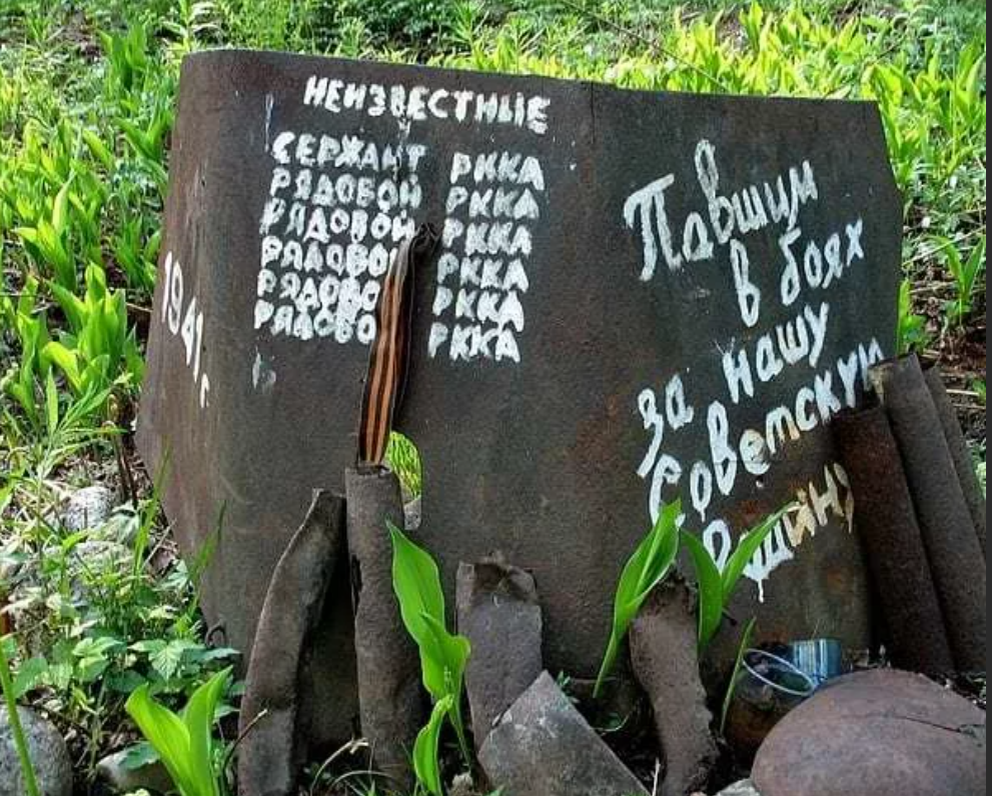 НЕИЗВЕСТНЫЕ
СЕРЖАНТ РККА
РЯДОВОЙ РККА
РЯДОВОЙ РККА
РЯДОВОЙ РККА
РЯДОВО РККА
РЯДОВО РККА
1941 г.
Павшим
в боях
за нашу
Советскую
Родину